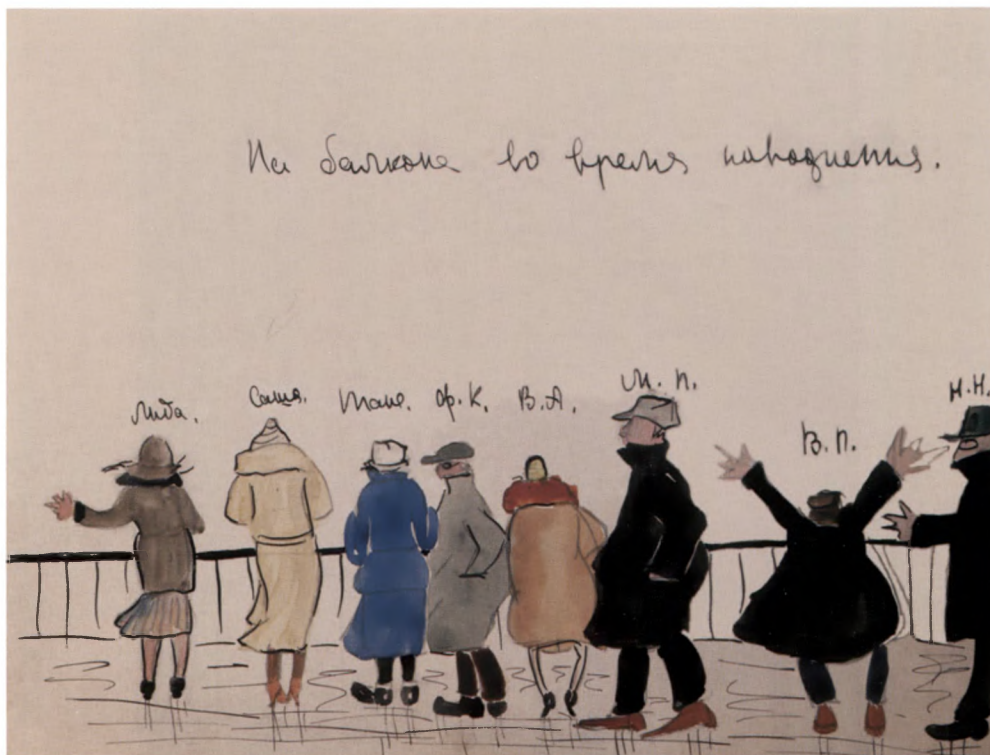 На балконе во время наводнения.
Лида. Саша. Таня. Ф.К. В.А. М.П. В.П. Н.Н.